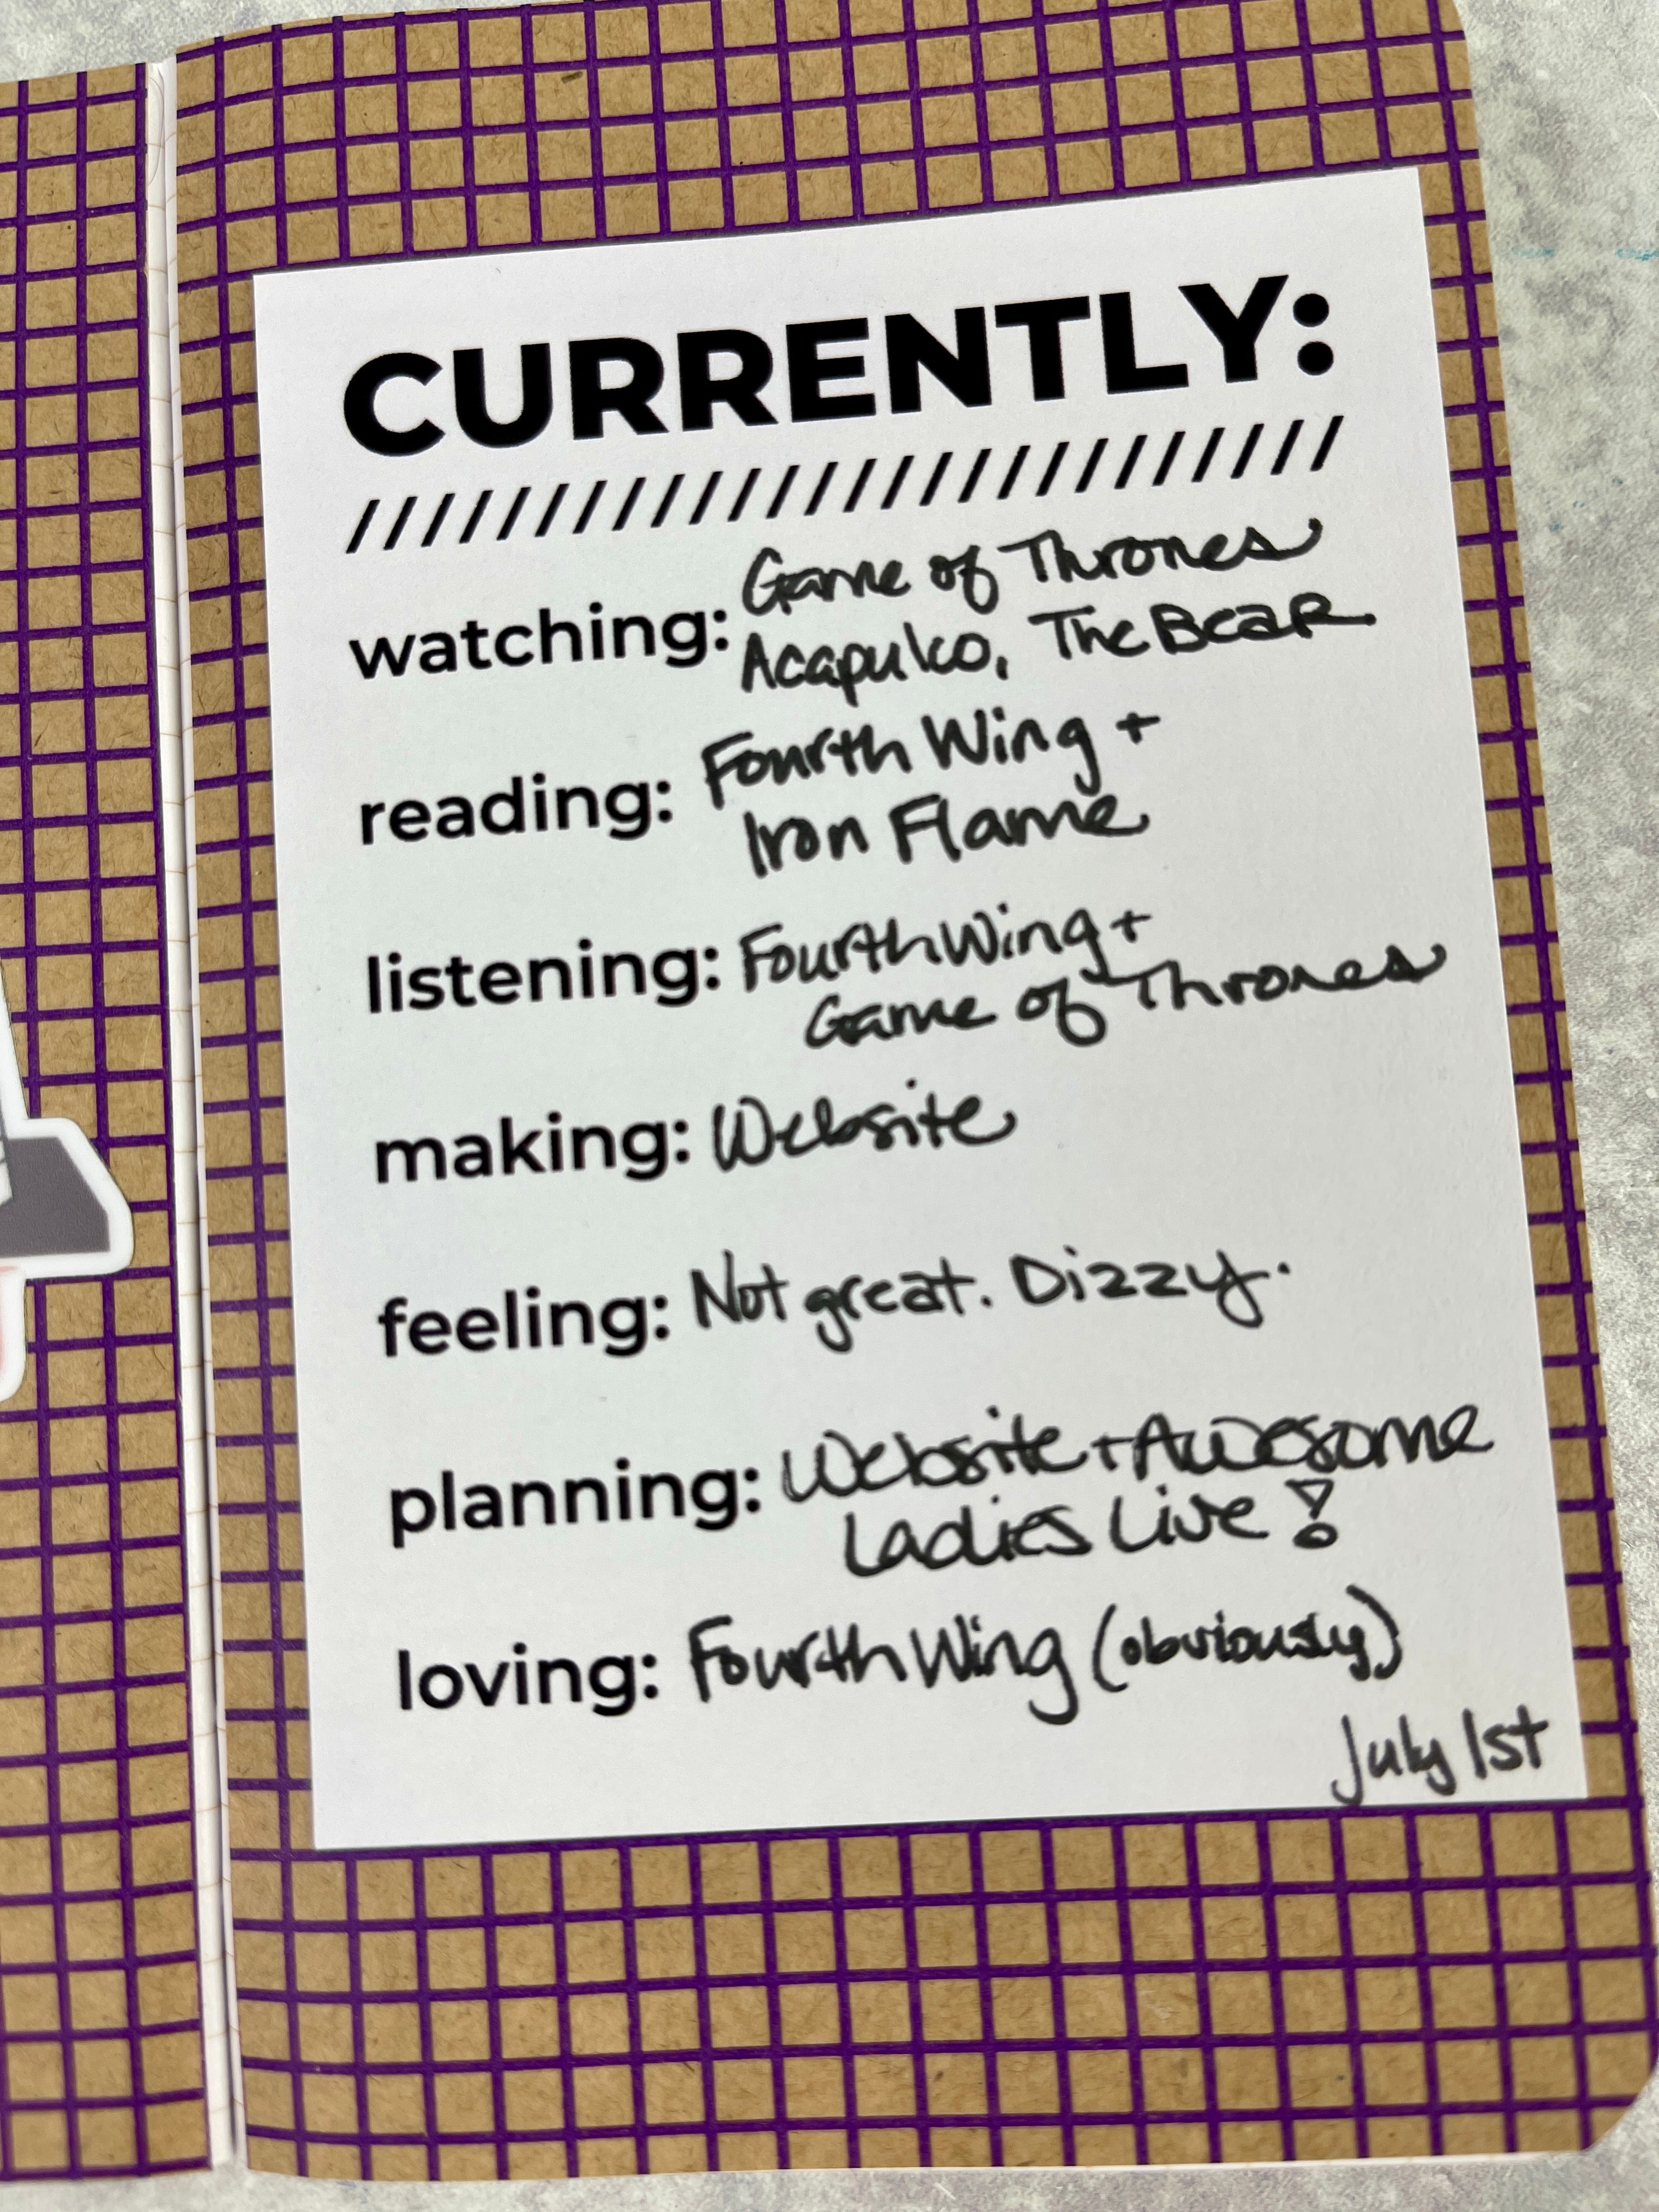 CURRENTLY:
////////////////////////////
watching: Game of Thrones
Acapulco, The Bear
reading: Fourth Wing +
Iron Flame
listening: Fourth Wing +
Game of Thrones
making: Website
feeling: Not great. Dizzy.
planning: Website + Awesome
Ladies Live!
loving: Fourth Wing (obviously)
July 1st